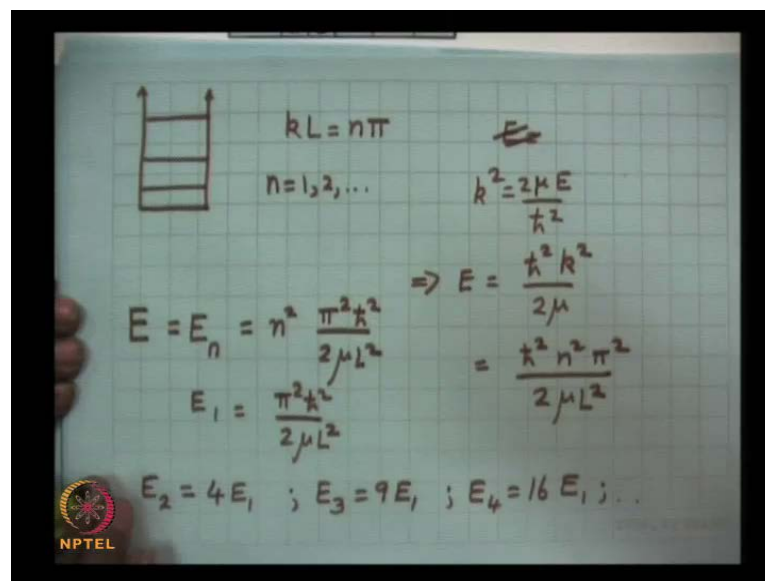 kL = nπ
n = 1, 2, ...
E =
k² = 2μE / ħ²
⇒ E = ħ² k² / 2μ
= ħ² n² π² / 2μL²
E = Eₙ = n² π² ħ² / 2μL²
E₁ = π² ħ² / 2μL²
E₂ = 4E₁ ; E₃ = 9E₁ ; E₄ = 16 E₁ ; ..
NPTEL